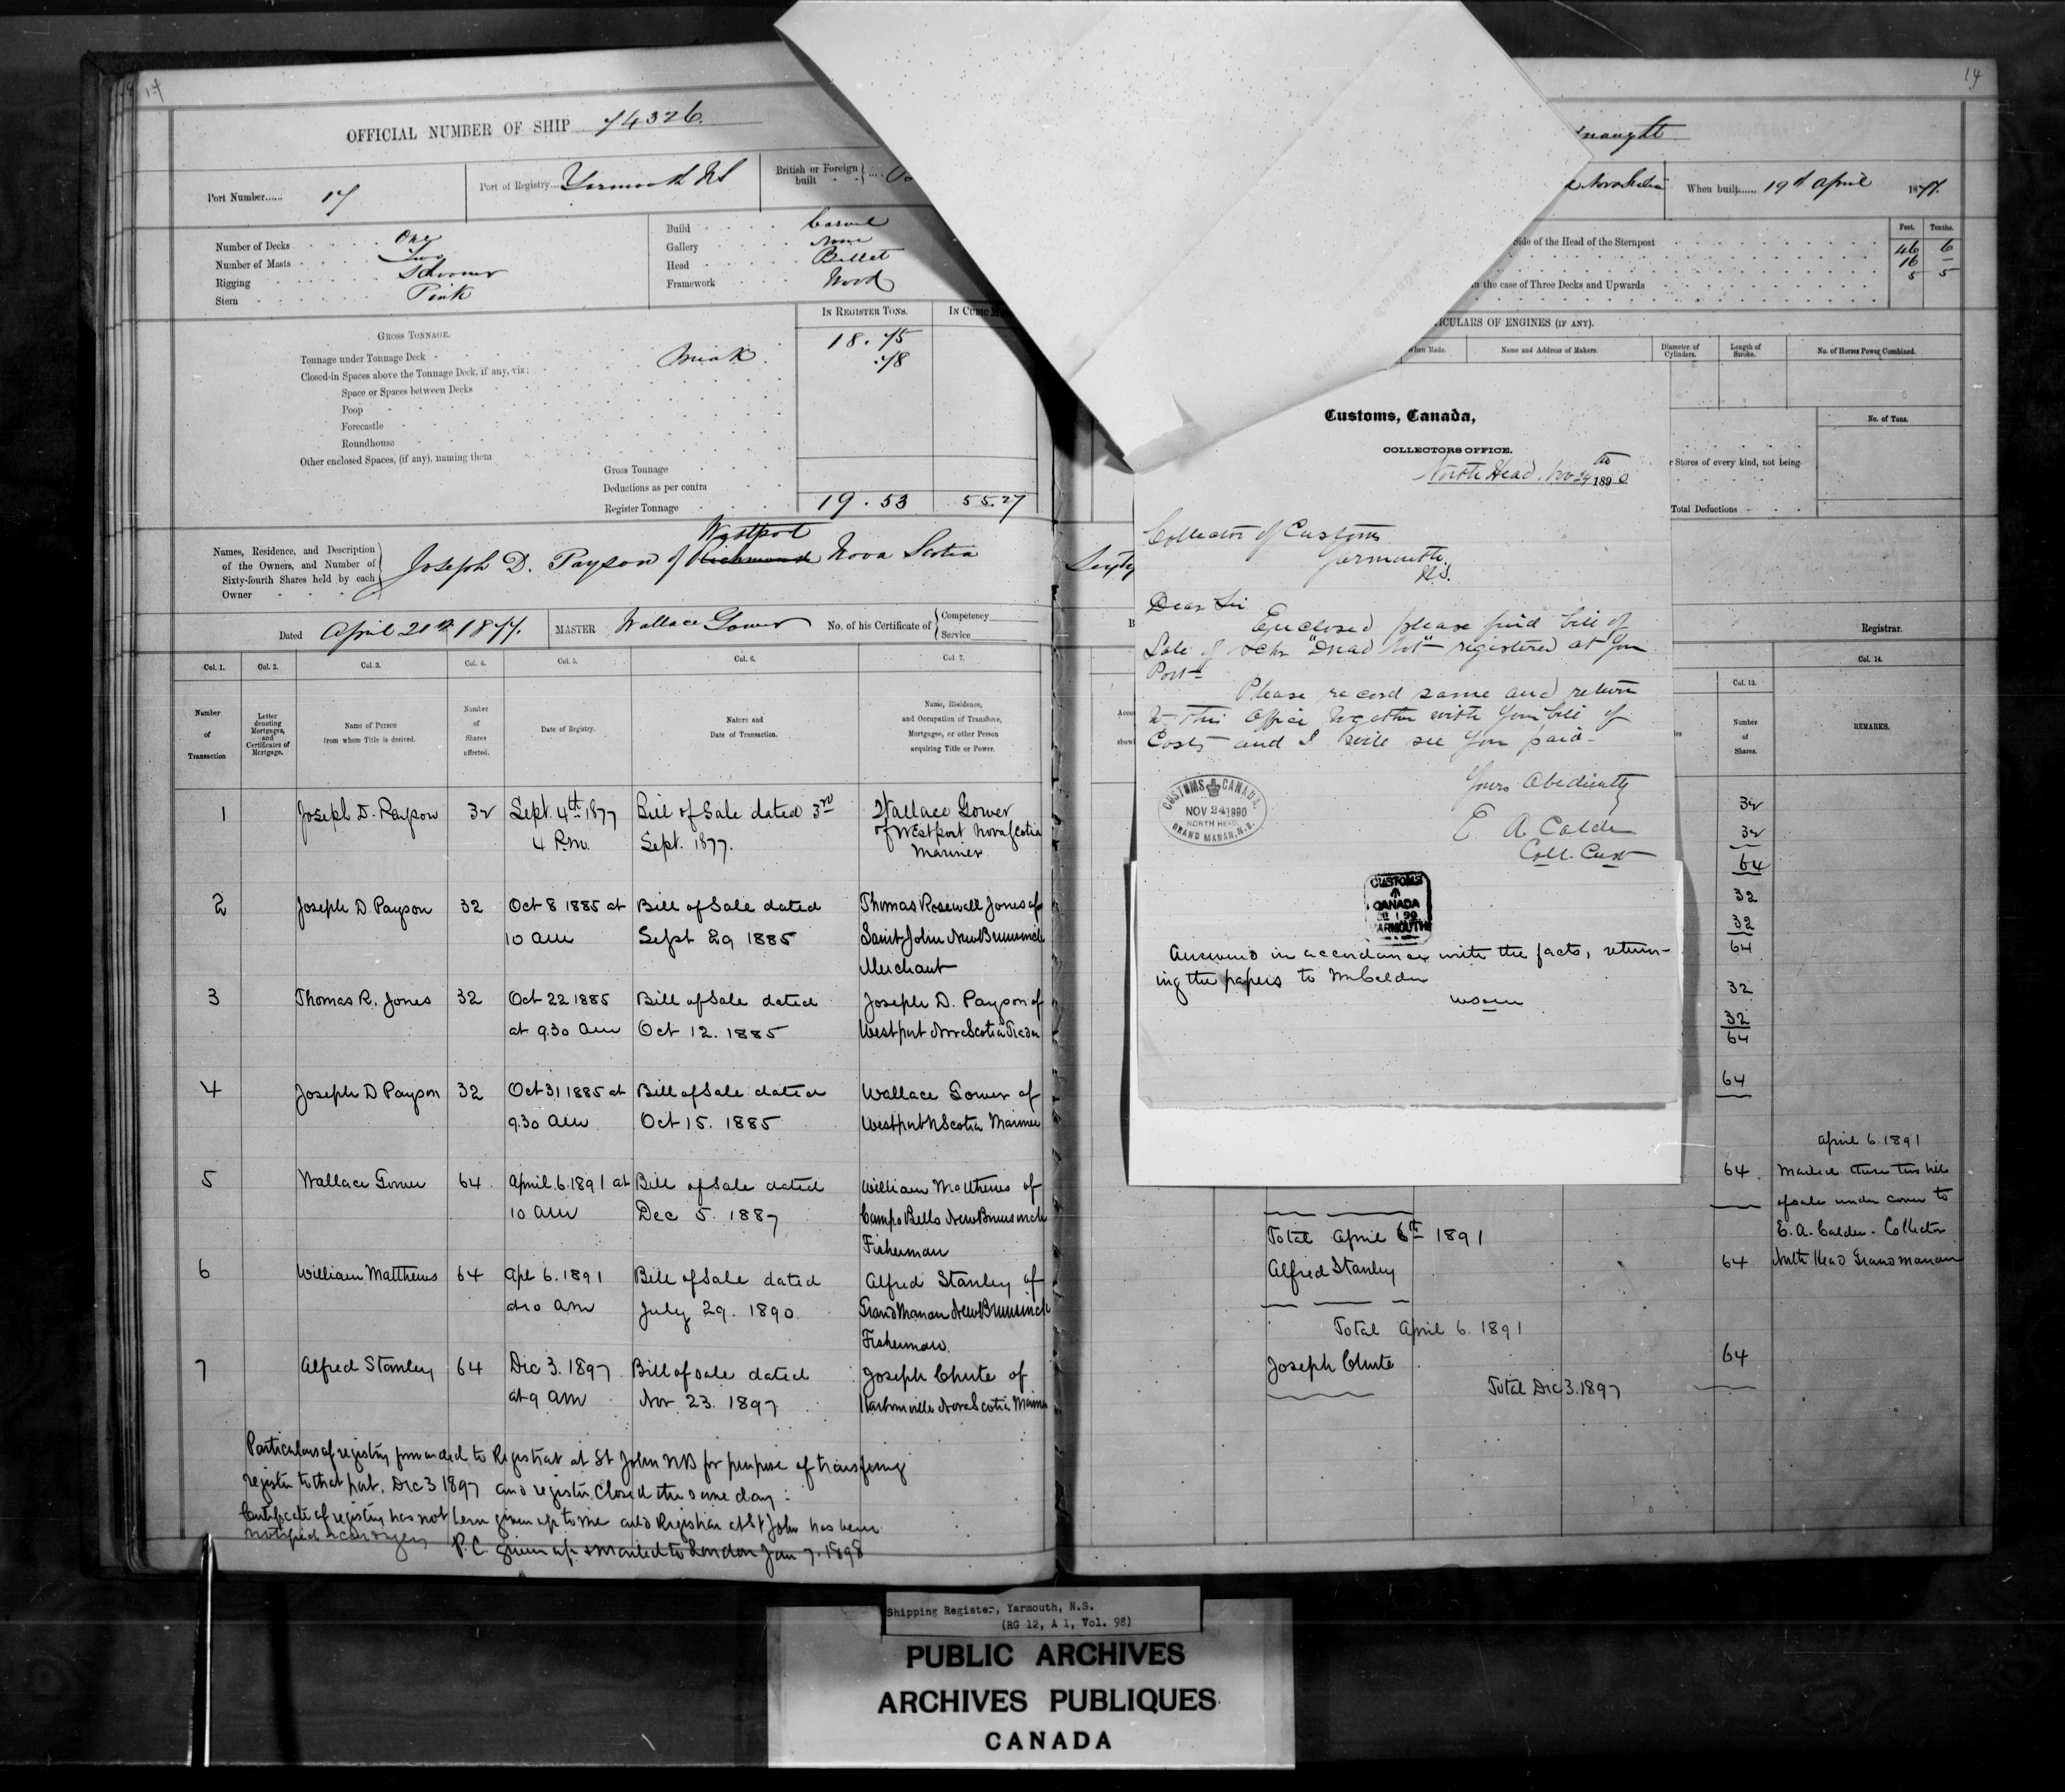 14
OFFICIAL NUMBER OF SHIP 74326.
Port Number...... 17
Port of Registry... Yarmouth NS
British or Foreign built
Number of Decks One
Number of Masts Two
Rigging Schooner
Stern Pink
Build Carvel
Gallery None
Head Billet
Framework Wood
GROSS TONNAGE.
IN REGISTER TONS.
Tonnage under Tonnage Deck 18.75
Closed-in Spaces above the Tonnage Deck, if any, viz: Break .78
Space or Spaces between Decks
Poop
Forecastle
Roundhouse
Other enclosed Spaces, (if any), naming them
Gross Tonnage
Deductions as per contra
Register Tonnage 19.53 55.27
Names, Residence, and Description
of the Owners, and Number of
Sixty-fourth Shares held by each
Owner
Westport
Joseph D. Payson of Richmond Nova Scotia
Dated April 21st 1877. MASTER Wallace Gower No. of his Certificate of Competency
Service
Col. 1. Col. 2. Col. 3. Col. 4. Col. 5. Col. 6. Col. 7.
Number of Transaction
Letter denoting Mortgages, and Certificates of Mortgage.
Name of Person from whom Title is derived.
Number of Shares affected.
Date of Registry.
Nature and Date of Transaction.
Name, Residence, and Occupation of Transferee, Mortgagee, or other Person acquiring Title or Power.
1 Joseph D. Payson 32 Sept. 4th 1877 Bill of Sale dated 3rd Wallace Gower
4 P.m. Sept. 1877. of Westport Nova Scotia
Mariner
2 Joseph D. Payson 32 Oct 8 1885 at Bill of Sale dated Thomas Rosewall Jones of
10 am Sept 29 1885 Saint John New Brunswick
Merchant
3 Thomas R. Jones 32 Oct 22 1885 Bill of Sale dated Joseph D. Payson of
at 9.30 am Oct 12. 1885 Westport Nova Scotia
4 Joseph D Payson 32 Oct 31 1885 at Bill of Sale dated Wallace Gower of
9.30 am Oct 15. 1885 Westport N Scotia Mariner
5 Wallace Gower 64 April 6. 1891 at Bill of Sale dated William Matthews of
10 am Dec 5. 1887 Campo Bello New Brunswick
Fisherman
6 William Matthews 64 Apl 6. 1891 Bill of Sale dated Alfred Stanley of
at 10 am July 29. 1890. Grand Manan New Brunswick
Fisherman
7 Alfred Stanley 64 Dec 3. 1897 Bill of Sale dated Joseph Chute of
at 9 am Nov 23. 1897 Harbourville Nova Scotia
Particulars of registry forwarded to Registrar at St John NB for purpose of transfering
register to that port, Dec 3 1897 and register closed the same day:
Certificate of registry has not been given up to me and Registrar at St John has been
notified accordingly
P.C. given up & mailed to London Jan 7. 1898
14
naught
Nova Scotia
When built...... 19th April 1877.
Side of the Head of the Sternpost
in the case of Three Decks and Upwards
Feet. Tenths.
46 6
16 -
5 5
ICULARS OF ENGINES (IF ANY).
When Made.
Name and Address of Makers.
Diameter of Cylinders.
Length of Stroke.
No. of Horses Power Combined.
No. of Tons.
r Stores of every kind, not being
Total Deductions
Registrar.
Customs, Canada,
COLLECTORS OFFICE.
North Head. Nov 24th 1890
Collector of Customs
Yarmouth
N.S.
Dear Sir
Enclosed please find bill of
Sale of Schr "Dread Not" registered at your
Port
Please record same and return
to this office together with your bill of
Costs and I will see you paid-
Yours Obediently
E A Calder
Coll. Cust
CUSTOMS CANADA.
NOV 24 1890
NORTH HEAD
GRAND MANAN, N.B.
CUSTOMS
CANADA
YARMOUTH
Answered in accordance with the facts, return-
ing the papers to Mr Calder
Col. 13.
Number of Shares.
Col. 14.
REMARKS.
32
32
64
32
32
64
32
32
64
64
64
April 6. 1891
Mailed these two bills
of sale under cover to
E. A. Calder - Collector
North Head Grand Manan
Total April 6th 1891
Alfred Stanley 64
Total April 6. 1891
Joseph Chute 64
Total Dec 3. 1897
Shipping Register, Yarmouth, N.S.
(RG 12, A 1, Vol. 98)
PUBLIC ARCHIVES
ARCHIVES PUBLIQUES
CANADA